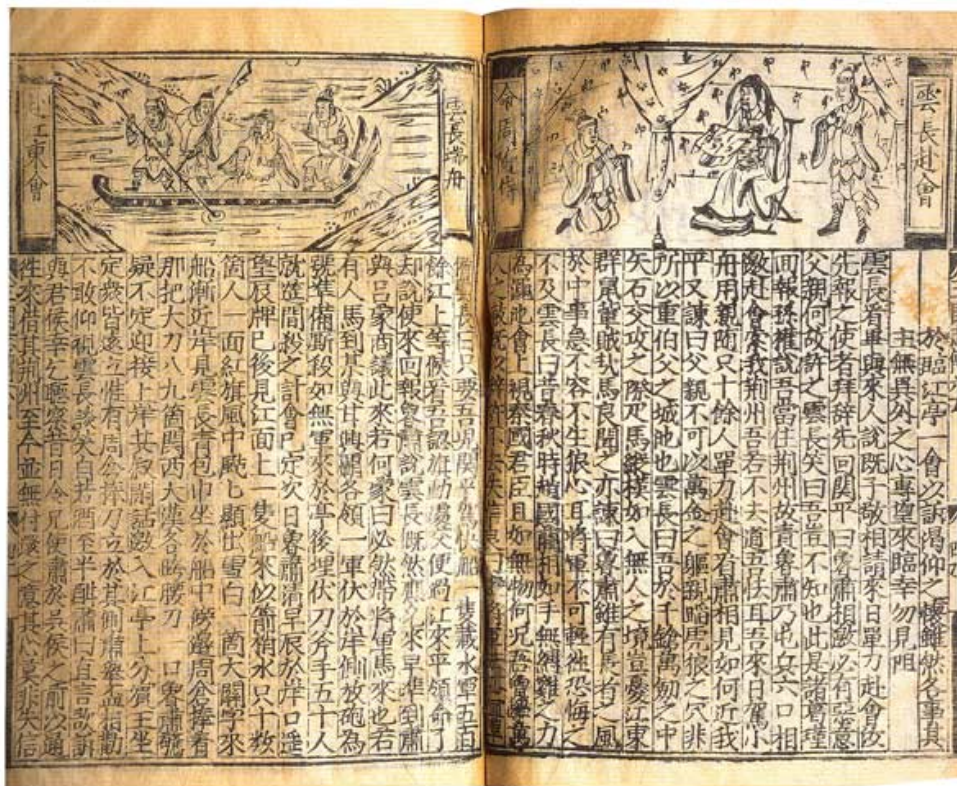 雲長赴會
令周
於臨江亭一會以訴渴仰之懷雖然名事真
主無異外之心專望來臨幸勿見阻
雲長看畢與來人說既子敬相請來日單刀赴會故
先報之使者拜辭先回関平曰魯肅相邀必有惡意
父親何故許之雲長笑曰吾豈不知也此是諸葛瑾
回報孫權說吾當住荆州故責魯肅乃屯兵六口相
邀赴會索我荆州吾若不去道吾怯耳吾來日駕小
舟用親隨只十餘人單刀赴會看肅相見如何近我
平又諫曰父親不可以萬金之軀親蹈虎狼之穴非
所以重伯父之城池也雲長曰吾於千鎗萬刃之中
矢石交攻之際疋馬縱横如入無人之境豈憂江東
群鼠輩賊哉馬良聞之亦諫曰魯肅雖有長者之風
於中事急不容不生狠心且將軍不可輕徃恐悔之
不及雲長曰昔春秋時趙國藺相如手無縛雞之力
為澠池會上視秦國君臣且如無物何况吾曾學萬
人之敵
雲長端舟
江東會
長曰只要吾兒関平駕快船隻載水軍五百
餘江上等候看吾認旗動處便過江來平領命了
却說使來回報魯肅說雲長既然應允來早準到肅
與吕蒙商議此來若何蒙曰必然帶將軍馬來也若
有人馬到某與甘興覇各領一軍伏於岸側放砲為
號準備厮殺如無軍來於亭後埋伏刀斧手五十人
就筵間投之計會已定次日魯肅清早辰於岸口遥
望辰牌已後見江面上一隻船來似箭梢水只十數
箇人一面紅旗風中颭七顯出雪白一箇大関字來
船漸近岸見雲長青包巾坐於船中傍邊周倉捧着
那把大刀八九箇関西大漢各跨腰刀一口魯肅驚
疑不定迎接上岸其寂閑話邀入江亭上分賓主坐
定衆皆遠立惟有周倉捧刀立於其側肅舉盃相勸
不敢仰視雲長談笑自若酒至半酣肅曰直言敢訴
與君侯幸乞聴察昔日令兄使肅於吳侯之前以通
徃來借其荆州至今並無付還之意其心莫非失信